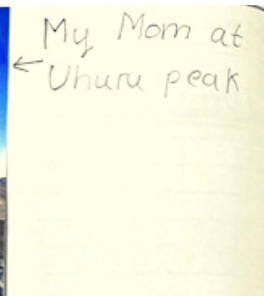 My Mom at
← Uhuru peak